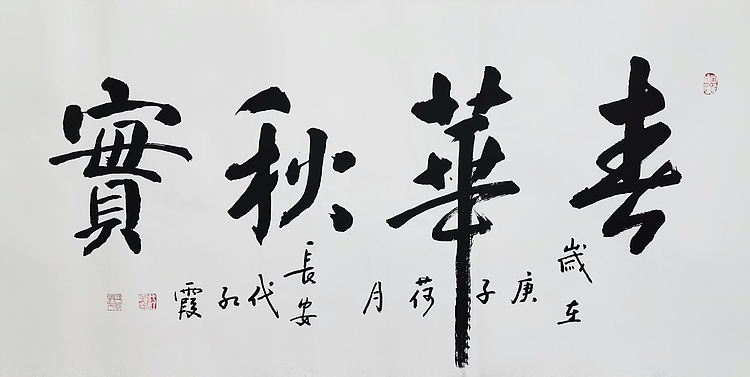 春華秋實
歲在庚子荷月
長安代紅霞